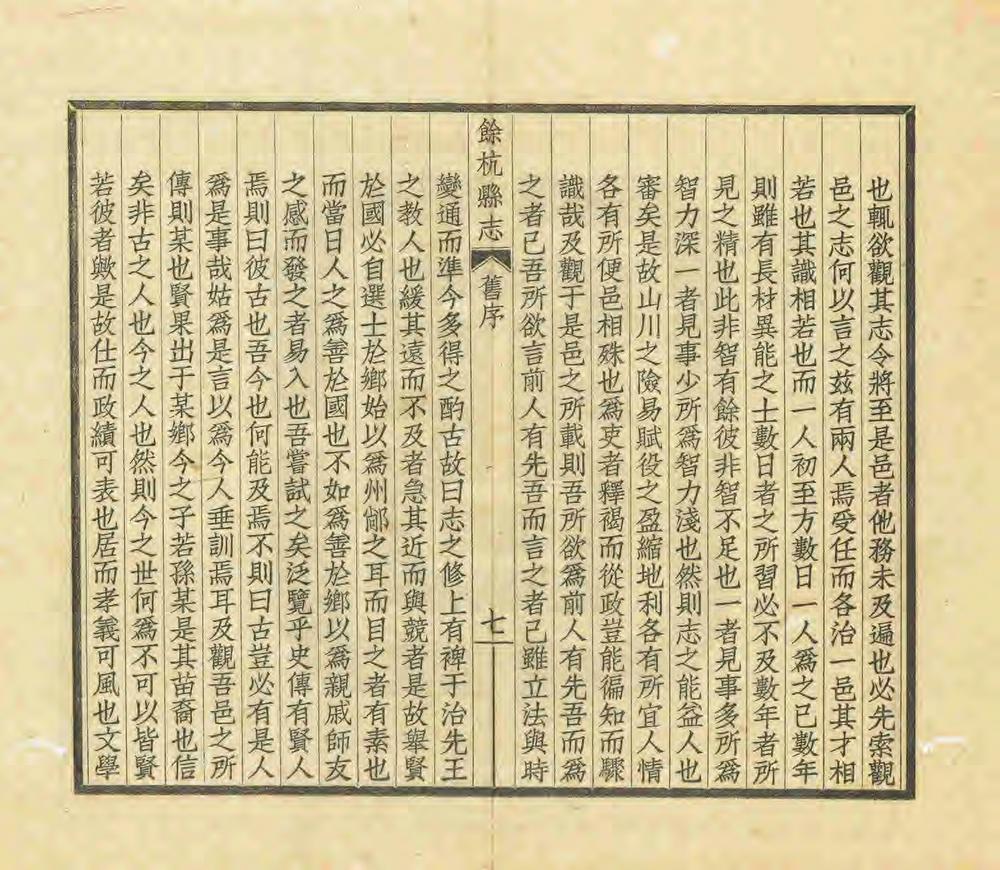 也輒欲觀其志今將至是邑者他務未及遍也必先索觀
邑之志何以言之茲有兩人焉受任而各治一邑其才相
若也其識相若也而一人初至方數日一人為之已數年
則雖有長材異能之士數日者之所習必不及數年者所
見之精也此非智有餘彼非智不足也一者見事多所為
智力深一者見事少所為智力淺也然則志之能益人也
審矣是故山川之險易賦役之盈縮地利各有所宜人情
各有所便邑相殊也為吏者釋褐而從政豈能徧知而驟
識哉及觀于是邑之所載則吾所欲為前人有先吾而為
之者已吾所欲言前人有先吾而言之者已雖立法與時
餘杭縣志 舊序 七
變通而準今多得之酌古故曰志之修上有裨于治先王
之教人也緩其遠而不及者急其近而與競者是故舉賢
於國必自選士於鄉始以為州鄙之耳而目之者有素也
而當日人之為善於國也不如為善於鄉以為親戚師友
之感而發之者易入也吾嘗試之矣泛覽乎史傳有賢人
焉則曰彼古也吾今也何能及焉不則曰古豈必有是人
為是事哉姑為是言以為今人垂訓焉耳及觀吾邑之所
傳則某也賢果出于某鄉今之子若孫某是其苗裔也信
矣非古之人也今之人也然則今之世何為不可以皆賢
若彼者歟是故仕而政績可表也居而孝義可風也文學